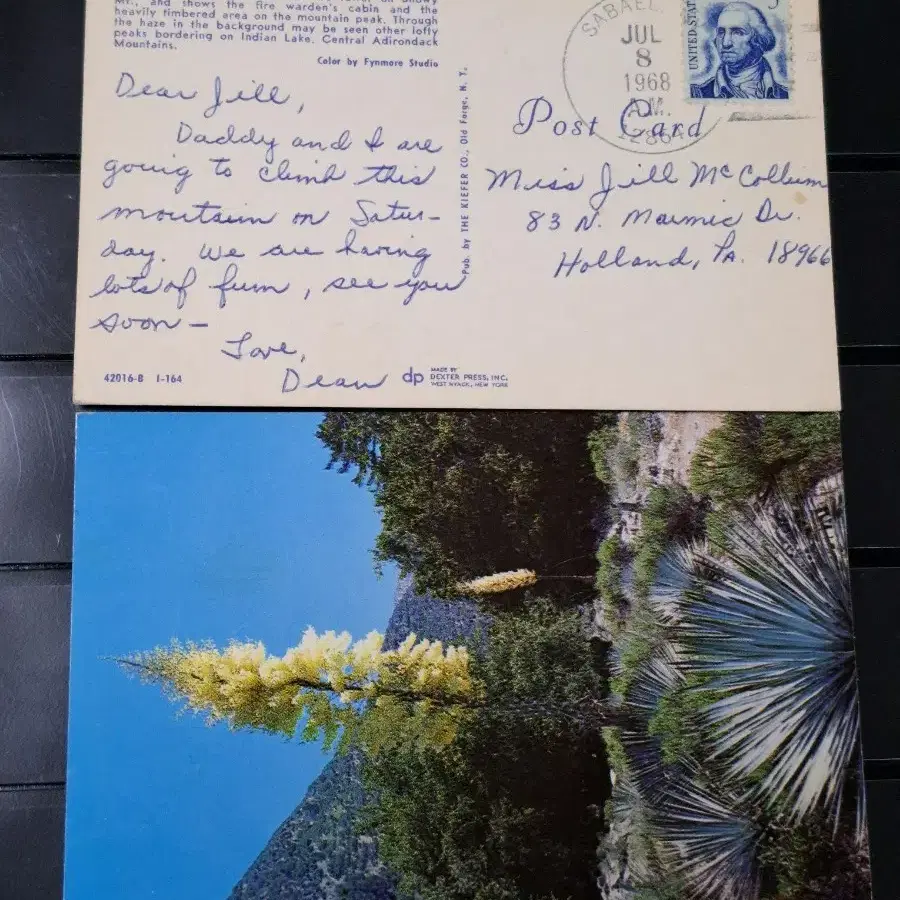 Mt., and shows the fire warden's cabin and the
heavily timbered area on the mountain peak. Through
the haze in the background may be seen other lofty
peaks bordering on Indian Lake, Central Adirondack
Mountains.
Color by Fynmore Studio
Dear Jill,
Daddy and I are
going to climb this
mountain on Satur-
day. We are having
lots of fun, see you
soon—
Love,
Dean
42016-B I-164
dp MADE BY
DEXTER PRESS, INC.
WEST NYACK, NEW YORK
Pub. by THE KIEFER CO., Old Forge, N. Y.
SABAEL
JUL
8
1968
A.M.
UNITED STAT
5
Post Card
Miss Jill McCollum
83 N. Marmic Dr.
Holland, Pa. 18966